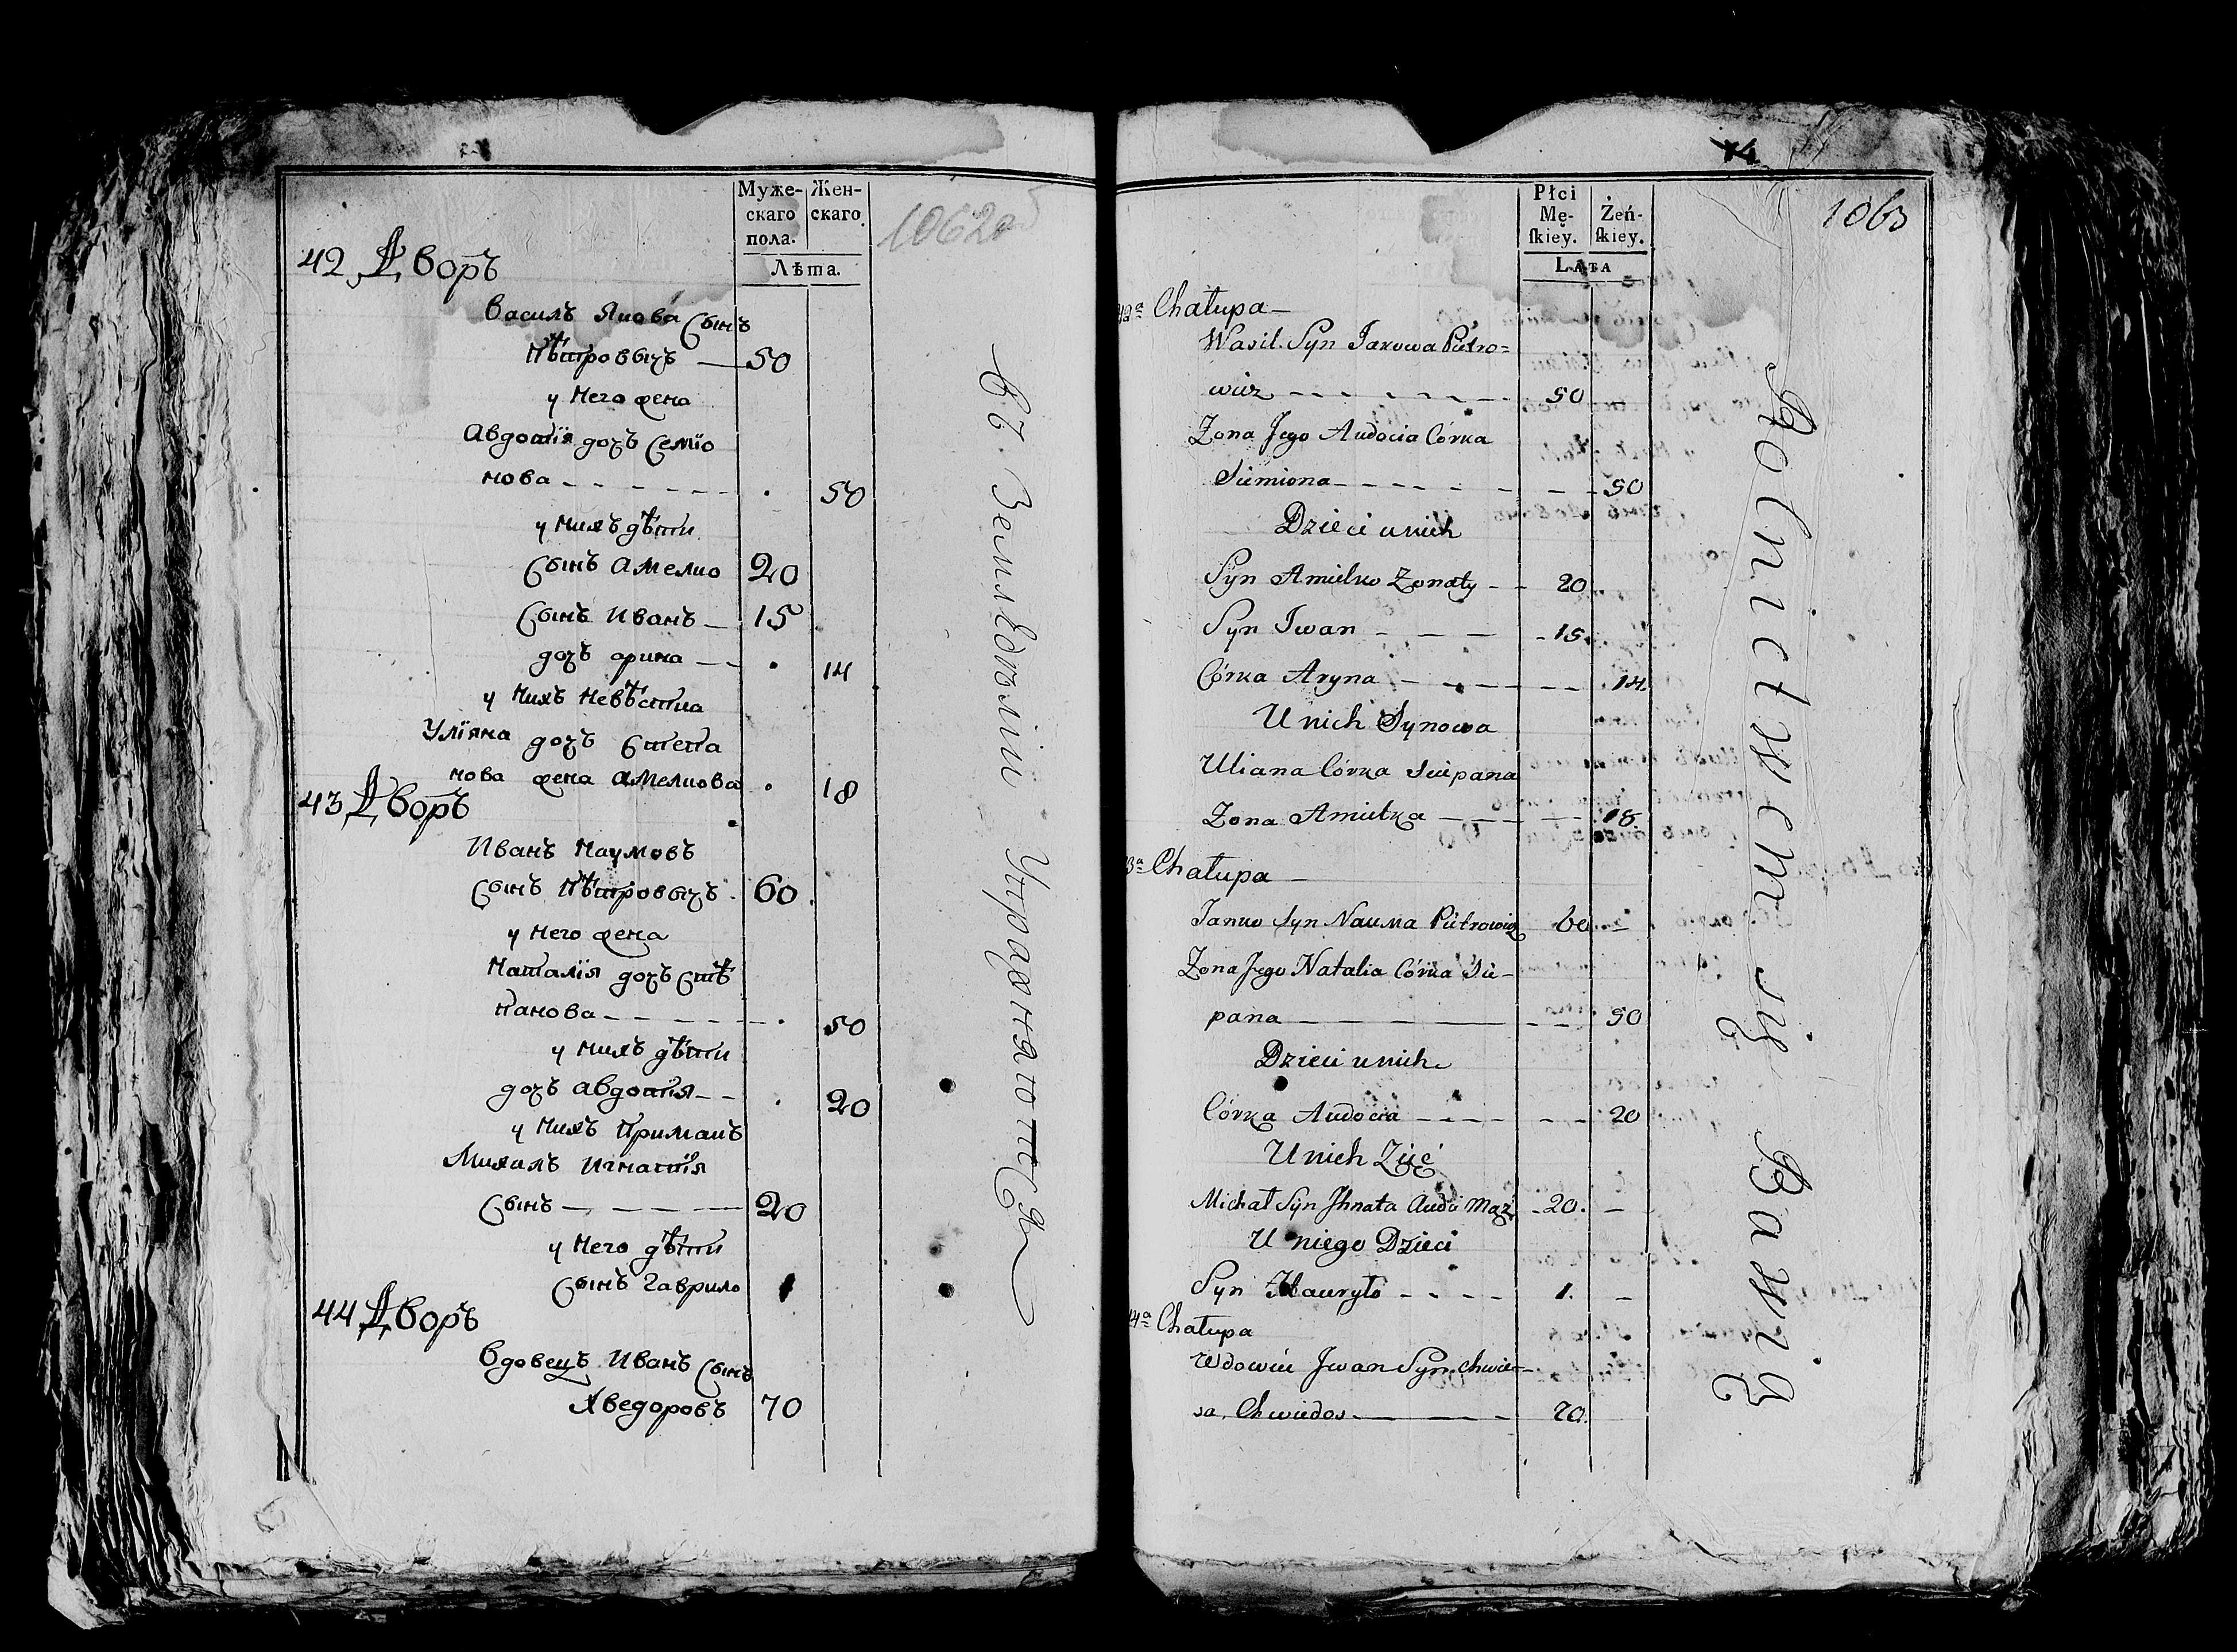 Муже-
скаго
пола.
Жен-
скаго
Лѣта.
1062об
42 Дворъ
Василъ Якова Сынъ
Пѣтровичъ — 50
у него жена
Авдотїя дочъ Семїо
нова - - - - - - . 50
у нихъ дѣти
Сынъ Амелко 20
Сынъ Иванъ — 15
дочъ орина — - . 14
у нихъ невѣстка
Улїяна дочъ Степа
нова жена Амелкова . 18
43 Дворъ
Иванъ Наумовъ
Сынъ Пѣтровичъ . 60
у него жена
Наталїя дочъ Стѣ
панова - - - - - . 50
у нихъ дѣти
дочъ Авдотїя - - . 20
у нихъ Примакъ
Михалъ Игнатїя
Сынъ - - - - - 20
у него дѣти
Сынъ Гаврило 1
44 Дворъ
Вдовецъ Иванъ Сынъ
Хведоровъ 70
въ Земледѣлїи Упражняются
Płci
Mę-
ſkiey.
Żeń-
ſkiey.
Lata
74
1063
42ª Chałupa —
Wasil Syn Jakowa Pietro=
wicz - - - - - - 50
Zona Jego Audocia Córka
Siemiona - - - - - - 50
Dzieci u nich
Syn Amielko Zonaty - - 20
Syn Iwan - - - - 15.
Córka Aryna - - - - - 14.
U nich Synowa
Uliana Córka Sciepana
Zona Amiełka - - - - 18.
3ª Chałupa —
Janko Syn Nauma Pietrowicz 60 -
Zona Jego Natalia Córka Scie-
pana - - - - - 50
Dzieci u nich
Córka Audocia - - - - - - 20
U nich Zięć
Michał Syn Jhnata Audo Mąż - 20. -
U niego Dzieci
Syn Hauryło - - - - 1. -
4ª Chałupa
Wdowiec Jwan Syn Chwie-
sa Chwiedos - - - 70.
Rolnictwem się Bawią